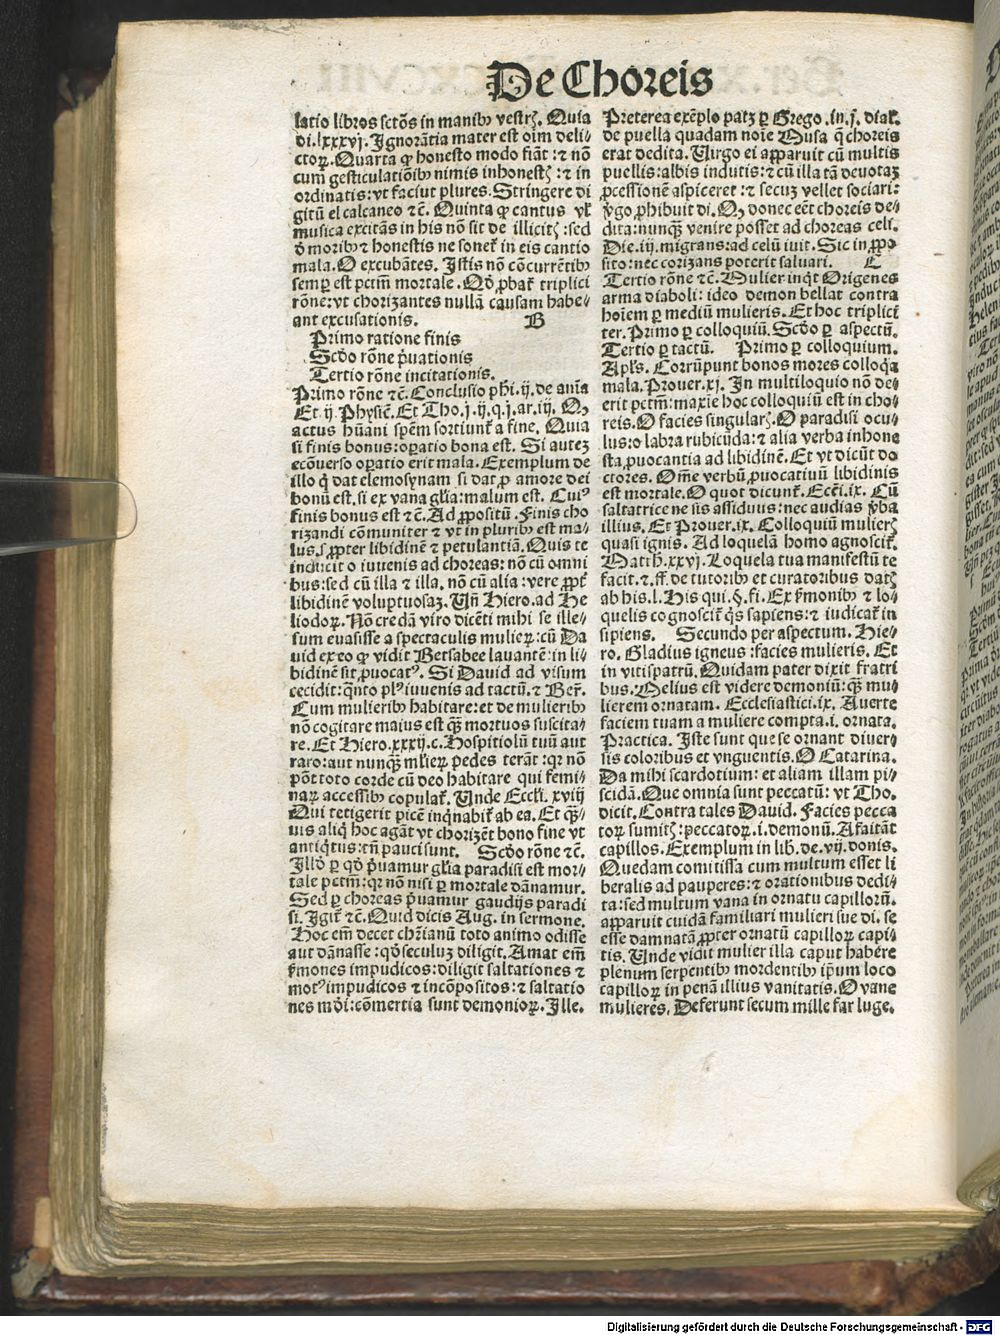 De Choreis
latio libros sctōs in manibꝰ vestrꝭ. Quia
di.lxxxvj. Ignorātia mater est oīm deli⸗
ctoꝝ. Quarta ꝙ honesto modo fiāt: ⁊ nō
cum gesticulatiōibꝰ nimis inhonestꝭ: ⁊ in
ordinatis: vt faciut plures. Stringere di
gitū el calcaneo ⁊c̄. Quinta ꝙ cantus vł
musica excitās in his nō sit de illicitꝭ: sed
ō moribꝰ ⁊ honestis ne sonet᷑ in eis cantio
mala. O excubātes. Istis nō cōcurrētibꝰ
semꝑ est pctm̄ mortale. Qō ꝓbat᷑ triplici
rōne: vt chorizantes nullā causam habe⸗
ant excusationis. B
Primo ratione finis
Scdō rōne p̄uationis
Tertio rōne incitationis.
Primo rōne ⁊c̄. Conclusio phī.ij. de aīa
Et ij. Physic̄. Et Tho.j.ij.q.j.ar.iij. Qꝫ
actus hūani spēm sortiunt᷑ a fine. Quia
si finis bonus: oꝑatio bona est. Si autē
ecōuerso oꝑatio erit mala. Exemplum de
illo q̄ dat elemosynam si dat ꝑ amore dei
bonū est. si ex vana gl̄ia: malum est. Cuiꝰ
finis bonus est ⁊c̄. Ad ꝓpositū. Finis cho
rizandi cōmuniter ⁊ vt in pluribꝰ est ma⸗
lus. s. ꝓpter libidinē ⁊ petulantiā. Quis te
inducit o iuuenis ad choreas: nō cū omni
bus: sed cū illa ⁊ illa. nō cū alia: vere ꝓpt᷑
libidinē voluptuosaꝫ. Vn̄ Hiero. ad He
liodoꝝ. Nō credā viro dicēti mihi se ille⸗
sum euasisse a spectaculis mulieꝝ: cū Da
uid ex eo ꝙ vidit Betsabee lauantē: in li⸗
bidinē sit ꝓuocatꝰ. Si Dauid ad visum
cecidit: q̄nto plꝰ iuuenis ad tactū. ⁊ Ber̄.
Cum mulieribꝰ habitare: et de mulieribꝰ
nō cogitare maius est q̄ꝫ mortuos suscita⸗
re. Et Hiero.xxxij.c. Hospitiolū tuū aut
raro: aut nunq̄ꝫ mlieꝝ pedes terāt: qꝛ nō
pōt toto corde cū deo habitare qui femi⸗
naꝝ accessibꝰ copulat᷑. Vnde Eccl̄i. xviij
Qui tetigerit picē inq̄nabit᷑ ab ea. Et q̄ꝫ⸗
uis aliq̄ hoc agāt vt chorizēt bono fine vt
antiq̄tus: tn̄ pauci sunt. Scdō rōne ⁊c̄.
Illō ꝑ qō p̄uamur gl̄ia paradisi est mor⸗
tale pctm̄: qꝛ nō nisi ꝑ mortale dānamur.
Sed ꝑ choreas p̄uamur gaudijs paradi
si. Igit᷑ ⁊c̄. Quid dicis Aug. in sermone.
Hoc em̄ decet chr̄ianū toto animo odisse
aut dānasse: qō seculuꝫ diligit. Amat em̄
s̄mones impudicos: diligit saltationes ⁊
motꝰ impudicos ⁊ incōpositos: ⁊ saltatio
nes mōi: cōmertia sunt demonioꝝ. Ille.
Preterea exēplo patꝫ ꝑ Grego. in.j. dial.
de puella quadam noīe Musa q̄ choreis
erat dedita. Virgo ei apparuit cū multis
puellis: albis indutis: ⁊ cū illa tā deuotaꝫ
ꝓcessionē aspiceret: ⁊ secuꝫ vellet sociari:
v̄go ꝓhibuit di. Qꝫ donec eēt choreis de⸗
dita: nunq̄ꝫ venire posset ad choreas celi.
Die.iij. migrans: ad celū iuit. Sic in ꝓpo
sito: nec corizans poterit saluari. C
Tertio rōne ⁊c̄. Mulier inq̄t Origenes
arma diaboli: ideo demon bellat contra
hoīem ꝑ mediū mulieris. Et hoc triplicī
ter. Primo ꝑ colloquiū. Scdō ꝑ aspectū.
Tertio ꝑ tactū. Primo ꝑ colloquium.
Apl̄s. Corrūpunt bonos mores colloq̄a
mala. Prouer.xj. In multiloquio nō de⸗
erit pctm̄: maxīe hoc colloquiū est in cho⸗
reis. O facies singularꝭ. O paradisi ocu⸗
lus: o labra rubicūda: ⁊ alia verba inhone
sta ꝓuocantia ad libidinē. Et vt dicūt do
ctores. Om̄e verbū ꝓuocatiuū libidinis
est mortale. O quot dicunt᷑. Eccl̄i.ix. Cū
saltatrice ne sis assiduus: nec audias v̄ba
illius. Et Prouer.ix. Colloquiū mulierꝭ
quasi ignis. Ad loquelā homo agnoscit᷑.
Matth.xxvj. Loquela tua manifestū te
facit. ⁊.ff. de tutoribꝰ et curatoribus datꝭ
ab his.l. His qui.§.fi. Ex s̄monibꝰ ⁊ lo⸗
quelis cognoscit᷑ q̄s sapiens: ⁊ iudicat᷑ in
sipiens. Secundo per aspectum. Hie⸗
ro. Gladius igneus: facies mulieris. Et
in vitispatrū. Quidam pater dixit fratri
bus. Melius est videre demoniū: q̄ꝫ mu⸗
lierem ornatam. Ecclesiastici.ix. Auerte
faciem tuam a muliere compta.i. ornata.
Practica. Iste sunt que se ornant diuer⸗
sis coloribus et vnguentis. O Catarina.
Da mihi scardotium: et aliam illam pi⸗
scidā. Que omnia sunt peccatū: vt Tho.
dicit. Contra tales Dauid. Facies pecca
toꝝ sumitꝭ: peccatoꝝ.i. demonū. Afaitāt
capillos. Exemplum in lib. de.vij. donis.
Quedam comitissa cum multum esset li
beralis ad pauperes: ⁊ orationibus dedi⸗
ta: sed multum vana in ornatu capillorū.
apparuit cuidā familiari mulieri sue di. se
esse damnatā ꝓpter ornatū capilloꝝ capi⸗
tis. Vnde vidit mulier illa caput habēre
plenum serpentibꝰ mordentibꝰ ip̄um loco
capilloꝝ in penā illius vanitatis. O vane
mulieres. Deferunt secum mille far luge.
Digitalisierung gefördert durch die Deutsche Forschungsgemeinschaft - DFG